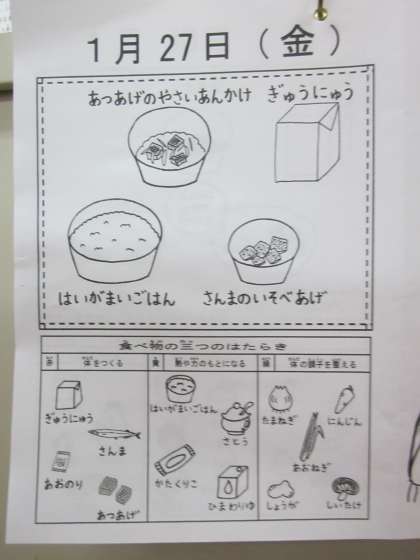 1月27日(金)
あつあげのやさいあんかけ ぎゅうにゅう
はいがまいごはん さんまのいそべあげ
食べ物の三つのはたらき
赤 体をつくる 黄 熱や力のもとになる 緑 体の調子を整える
ぎゅうにゅう
さんま
あおのり
あつあげ
はいがまいごはん
さとう
かたくりこ
ひまわりゆ
たまねぎ
にんじん
あおねぎ
しょうが
しいたけ